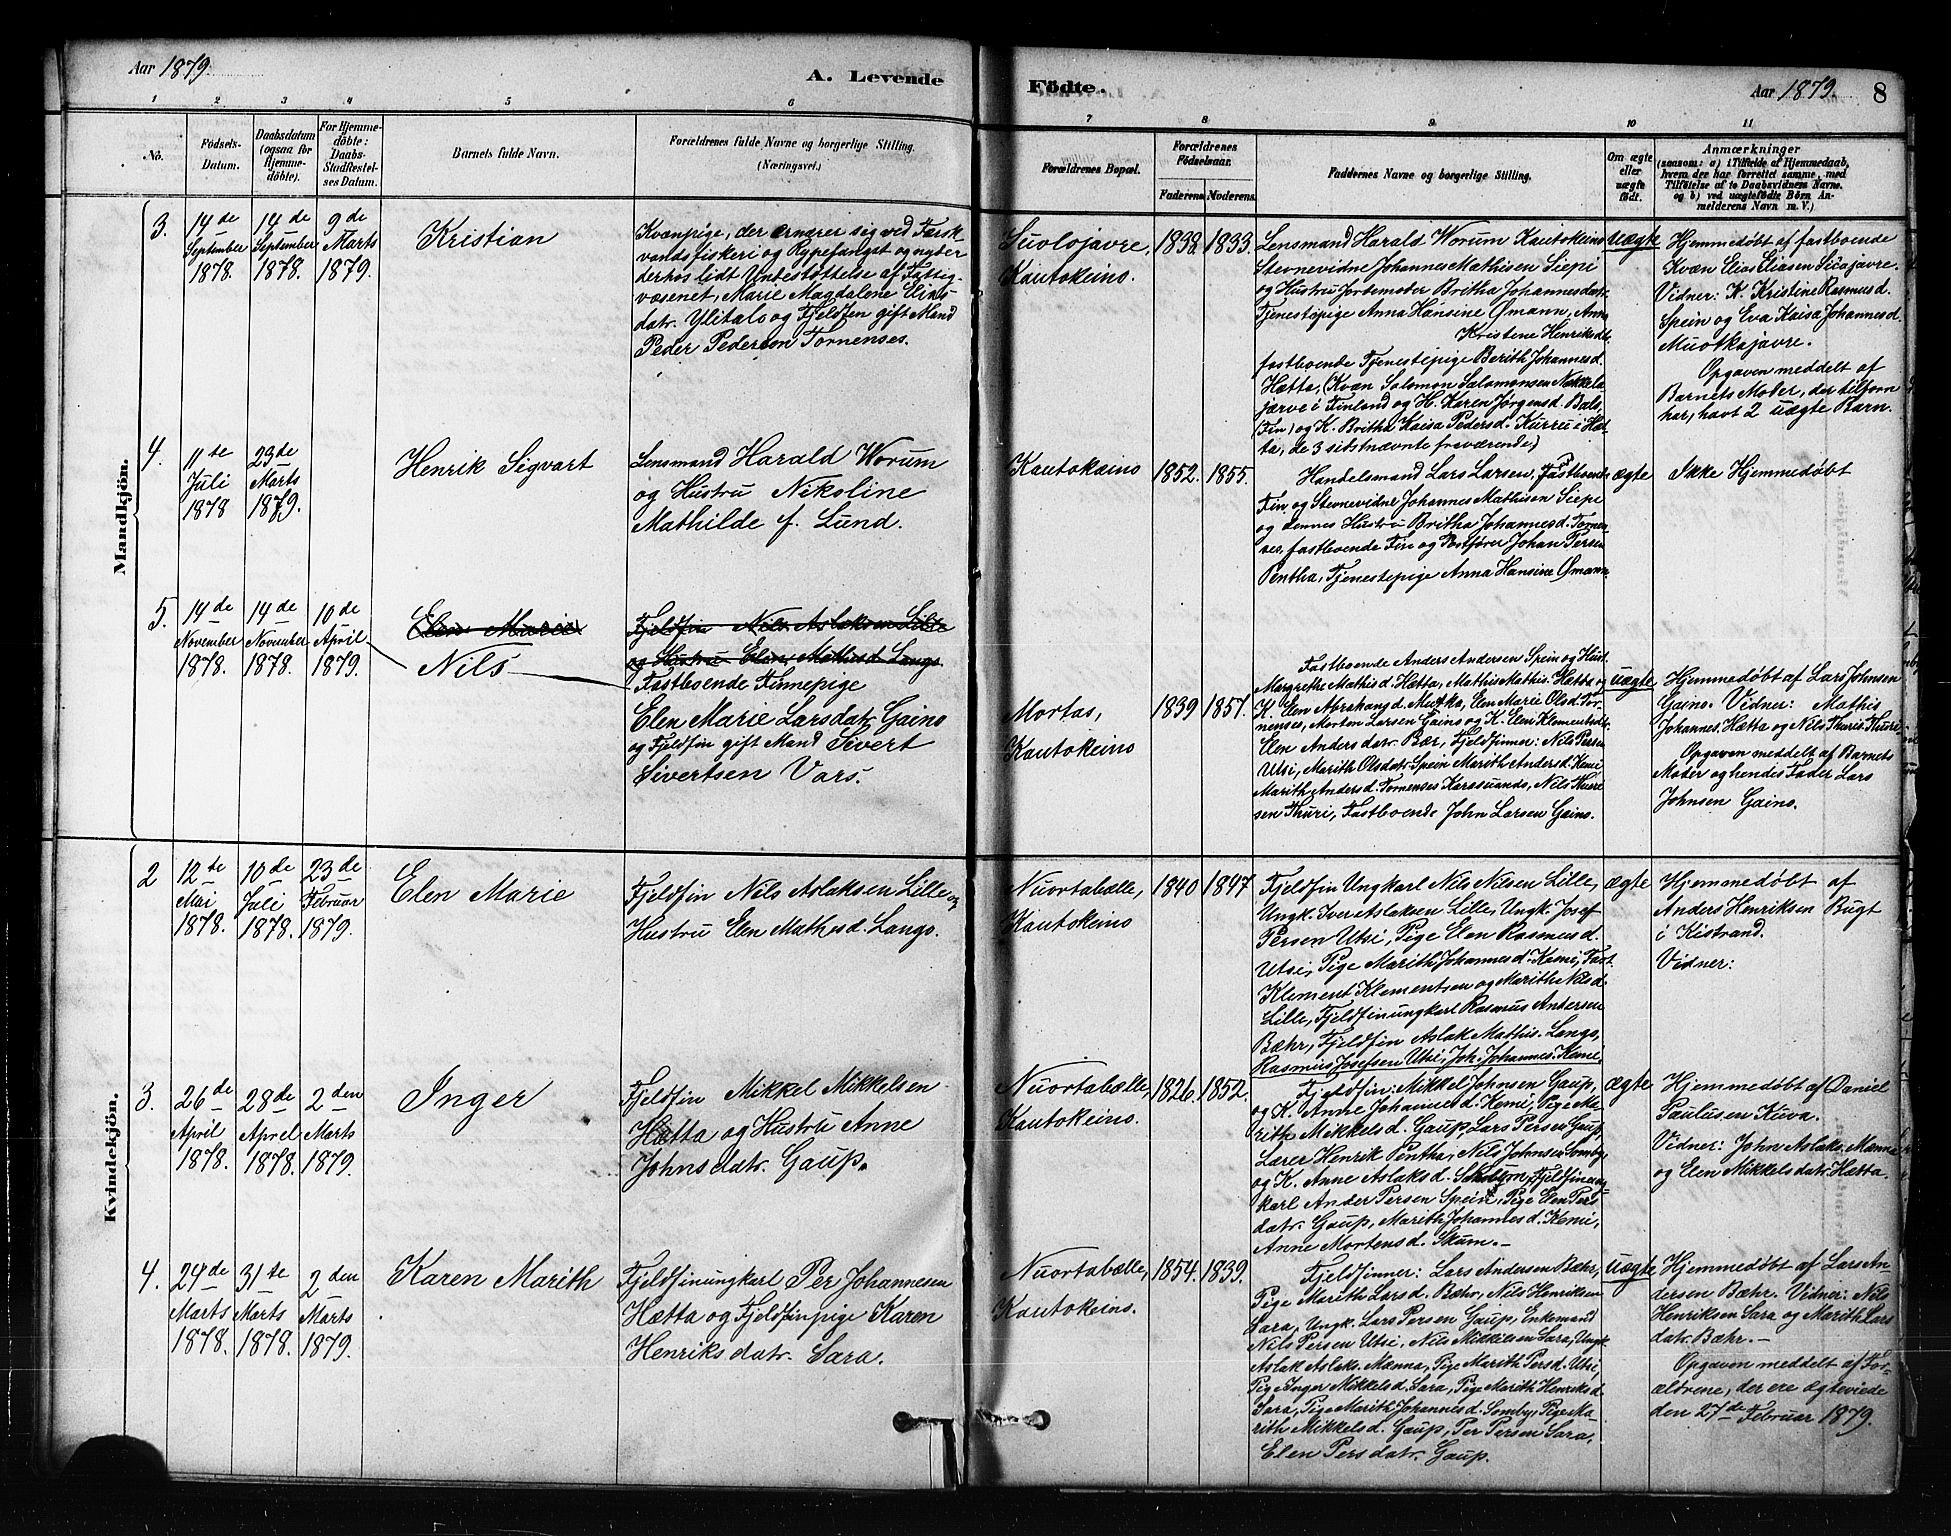 Aar 1879.
A. Levende
Födte.
Aar 1879.
8
1 2 3 4 5 6 7 8 9 10 11
No.
Födsels-
Datum.
Daabsdatum
(ogsaa for
Hjemme-
döbte).
For Hjemme-
döbte:
Daabs-
Stadfestel-
ses Datum.
Barnets fulde Navn.
Forældrenes fulde Navne og borgerlige Stilling.
(Næringsvei.)
Forældrenes Bopæl.
Forældrenes
Födselsaar.
Faderens Moderens
Faddernes Navne og borgerlige Stilling.
Om ægte
eller
uægte
födt.
Anmærkninger
(saasom: a) i Tilfælde af Hjemmedaab,
hvem der har forrettet samme, med
Tilföielse af to Daabsvidners Navne,
og b) ved uægtefödte Börn An-
melderens Navn m. V.)
Mandkjön.
3.
14de
September
1878.
14de
September
1878.
9de
Marts
1879.
Kristian
Kvænpige, der ernærer sig ved Fersk-
vandsfiskeri og Rypefangst og nyder
derhos lidt Understøttelse af Fattig-
væsenet, Marie Magdalene Elias-
datr. Ylitalo og Fjeldfin gift Mand
Peder Pedersen Tornenses.
Suolojavre,
Kautokeino.
1838. 1833.
Lensmand Harald Worum Kautokeino
Stevnevidne Johannes Mathisen Siepi
og Hustru Jordemoder Britha Johannesdatr.
Tjenestepige Anna Hansine Ømann, Anna
Kristene Henriksdtr.
fastboende Tjenestepige Berith Johannesd.
Hætta, (Kvæn Salomon Salomonsen Nækkela
järve i Finland og H. Karen Jørgensd. Bals,
(Fin) og K. Britha Kaisa Pedersd. Kurru i Hæt-
ta, de 3 sidstnævnte fraværende.)
uægte
Hjemmedøbt af fastboende
Kvæn Elias Eliasen Sicajavre.
Vidner: K. Kristine Rasmusd.
Spein og Eva Kaisa Johannesd.
Muotkajavre.
Opgaven meddelt af
Barnets Moder, der tilforn
har havt 2 uægte Børn.
4.
11te
Juli
1878
23de
Marts
1879.
Henrik Sigvart
Lensmand Harald Worum
og Hustru Nikoline
Mathilde f. Lund.
Kautokeino
1852. 1855.
Handelsmand Lars Larsen, Fastboende
Fin og Stevnevidne Johannes Mathisen Siepi
og dennes Hustru Britha Johannesd. Tornen-
ses, fastboende Fin og Postfører Johan Persen
Pentha, Tjenestepige Anna Hansine Ømann.
ægte
Ikke Hjemmedøbt
5.
14de
November
1878.
14de
November
1878.
10de
April
1879.
Elen Marie
Nils
Fjeldfin Nils Aslaksen Lille
og Hustru Elen Mathisd. Lango
Fastboende Finnepige
Elen Marie Larsdatr. Gaino
og Fjeldfin gift Mand Sivert
Sivertsen Vars.
Mortas,
Kautokeino
1839 1851.
Fastboende Anders Andersen Spein og Hust.
Margrethe Mathisd. Hætta, Mathis Mathis. Hætta og
K. Elen Abrahamsd. Mutka, Elen Marie Olsd. Tor-
nenses, Morten Larsen Gaino og K. Elen Klemetsdr.
Elen Andersdatr. Bær, Fjeldfinner: Nils Persen
Utsi, Marith Olsdatr. Spein Marith Andersd. Kemi
Marith Andersd. Tornenses Karasuando, Nils Thure
sen Thuri, Fastboende John Larsen Gaino.
uægte
Hjemmedøbt af Lars Johnsen
Gaino. Vidner: Mathis
Johannes. Hætta og Nils Thuris. Thuri
Opgaven meddelt af Barnets
Moder og hendes Fader Lars
Johnsen Gaino.
Kvindekjön.
2
12te
Mai
1878.
10de
Juli
1878.
23de
Februar
1879.
Elen Marie
Fjeldfin Nils Aslaksen Lille og
Hustru Elen Mathisd. Lango.
Nuortabælle,
Kautokeino
1840 1847
Fjeldfin Ungkarl Nils Nilsen Lille,
Ungk. Iver Aslaksen Lille, Ungk. Josef
Persen Utsi, Pige Elen Rasmusd.
Utsi, Pige Marith Johannesd. Kemi, Fast.
Klement Klementsen og Marith Nilsd.
Lille, Fjeldfinungkarl Rasmus Andersen
Bæhr, Fjeldfin Aslak Mathis. Lango,
Rasmus Josefsen Utsi, Joh. Johannes. Kemi.
ægte
Hjemmedøbt af
Anders Henriksen Bugt
i Kistrand.
Vidner:
3.
26de
April
1878.
28de
April
1878.
2den
Marts
1879.
Inger
Fjeldfin Mikkel Mikkelsen
Hætta og Hustru Anne
Johnsdatr. Gaup.
Nuortabælle,
Kautokeino.
1826. 1852.
Fjeldfin: Mikkel Johnsen Gaup,
og K. Anne Johannesd. Kemi, Pige Ma-
rith Mikkelsd. Gaup, Lars Persen Gaup,
Lærer Henrik Pentha, Nils Johnsen Somby,
og K. Anne Aslaksd. Skum, Fjeldfinung-
karl Ander Persen Spein, Pige Elen Pers
datr. Gaup, Marith Johannesd. Kemi,
Anne Mortensd. Skum.
ægte
Hjemmedøbt af Daniel
Paulusen Kuva.
Vidner: John Aslaks. Mænna
og Elen Mikkelsdatr. Hætta.
4.
24de
Marts
1878.
31te
Marts
1878.
2den
Marts
1879.
Karen Marith
Fjeldfinungkarl Per Johannesen
Hætta og Fjeldfinpige Karen
Henriksdatr. Sara.
Nuortabælle,
Kautokeino.
1854. 1839.
Fjeldfinner: Lars Andersen Bæhr,
Pige Marith Larsd. Bæhr, Nils Henriksen
Sara, Ungk. Lars Persen Gaup, Enkemand
Nils Persen Utsi, Nils Mikkelsen Sara, Ungk.
Aslak Aslaks. Mænna, Pige Marith Persd. Utsi,
Pige Inger Mikkelsd. Sara, Pige Marith Henriksd.
Sara, Pige Marith Johannesd. Somby, Pige Ma-
rith Mikkelsd. Gaup, Per Persen Sara,
Elen Persdatr. Gaup.
uægte
Hjemmedøbt af Lars An-
dersen Bæhr. Vidner: Nils
Henriksen Sara og Marith Lars
datr. Bæhr.
Opgaven meddelt af For-
ældrene, der ere ægteviede
den 27de Februar 1879.